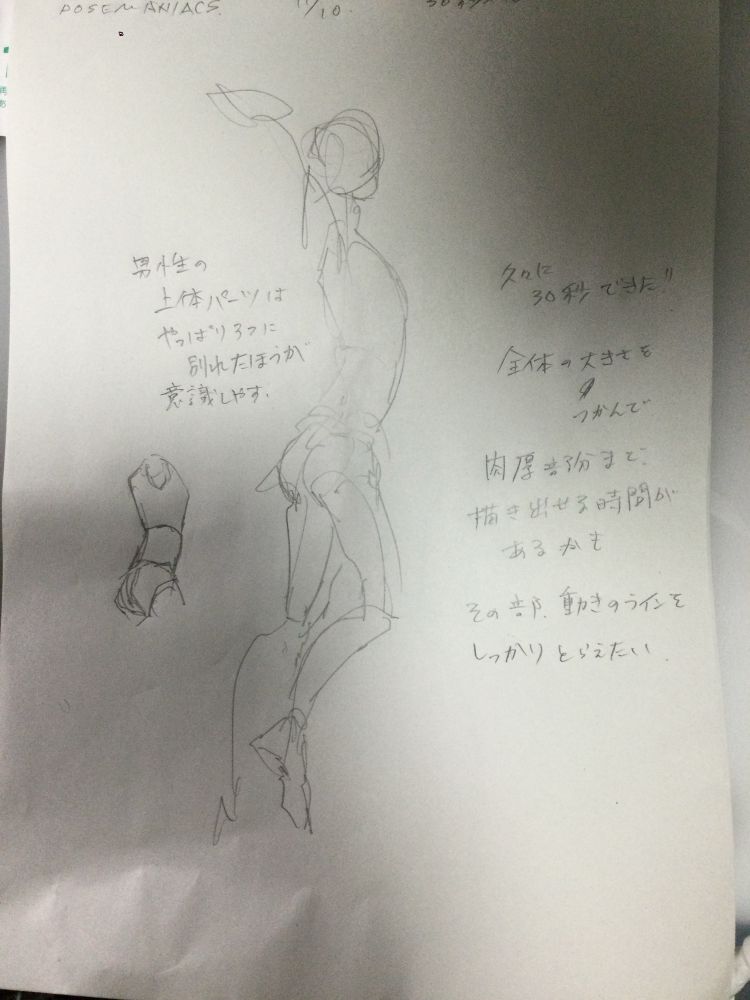 POSEMANIACS. 11/10.
男性の
上体パーツは
やっぱり3つに
別れたほうが
意識しやす.
久々に
30秒できた!!
全体の大きさを
つかんで
肉厚部分まで
描き出せる時間が
あるかも
その部.動きのラインを
しっかりとらえたい.